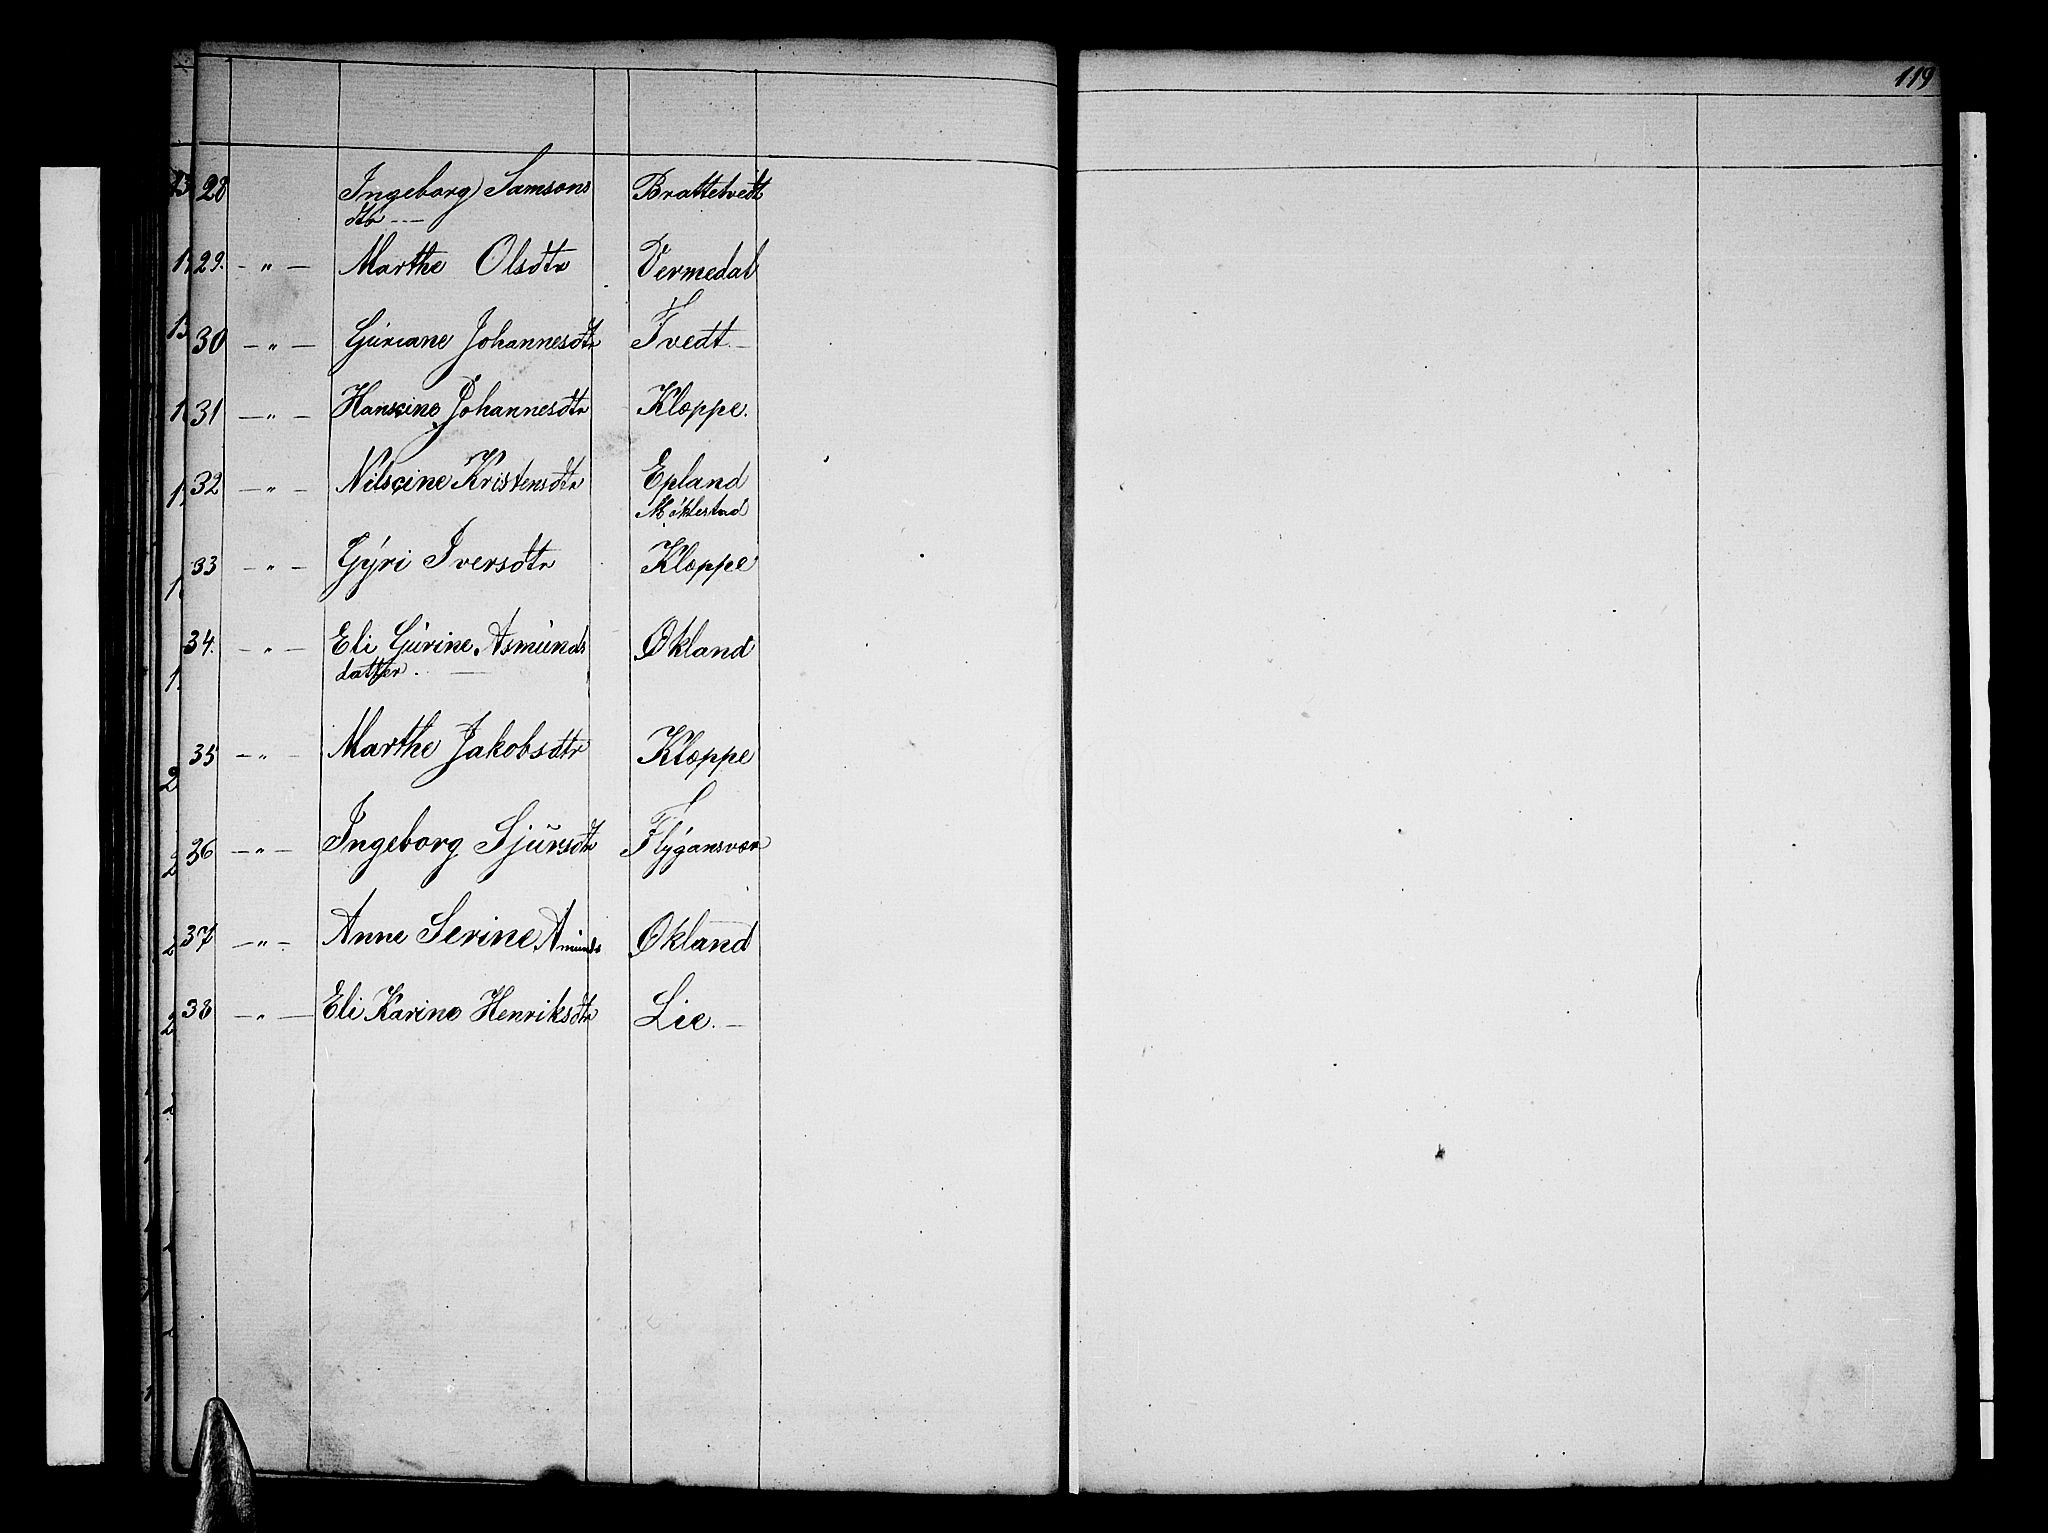 119
28 Ingeborg Samsons Brattetvedt
dtr - -
29. - " - Marthe Olsdtr Vermedal
30 - " - Guriane Johannesdtr Tvedt. -
31 - " - Hanscine Johannesdtr Kloppe.
32 - " - Nilscine Kristensdtr Epland
Möklestad
33 - " - Gyri Iversdtr Kloppe
34. - " - Eli Gurine Asmunds Økland
datter. -
35 - " - Marthe Jakobsdtr Kloppe
36 - " - Ingeborg Sjursdtr Flygansvær
37 - " - Anne Serine Amunds Økland
38 - " - Eli Karine Henriksdtr Lie. -